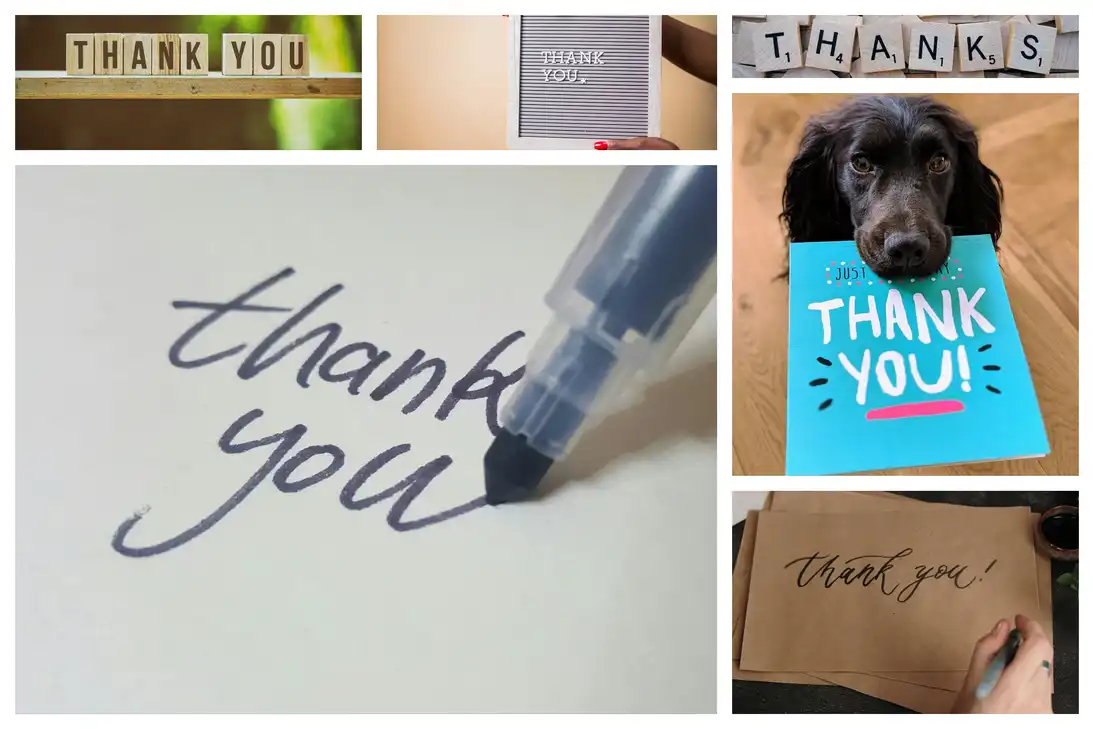 THANK YOU
THANK
YOU.
T1 H4 A1 N1 K5 S1
thank
you
JUST
THANK
YOU!
thank you!